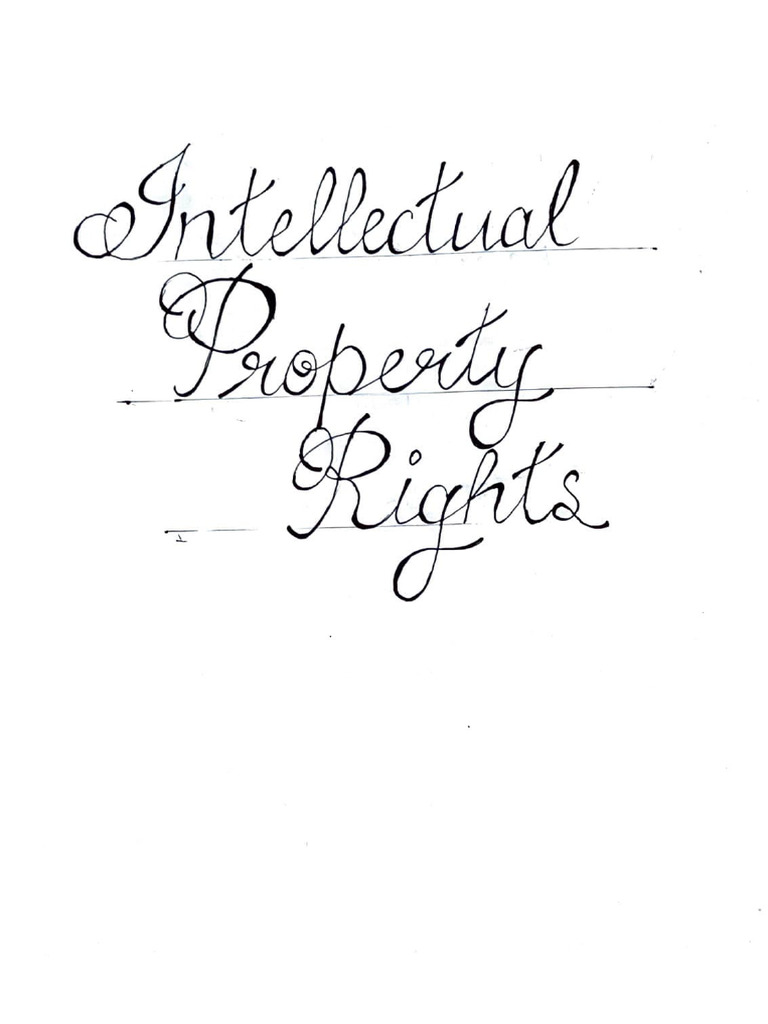 Intellectual
Property
Rights